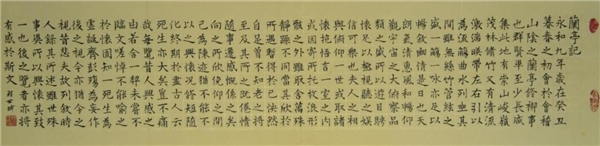 蘭亭記
永和九年歲在癸丑
暮春之初會於會稽
山陰之蘭亭修禊事
也群賢畢至少長咸
集此有崇山峻嶺
茂林脩竹又有清流
激湍暎帶左右引以
為流觴曲水列坐其
間雖無絲竹管絃之
盛一觴一詠亦足以
暢敘幽情是日也天
朗氣清惠風和暢仰
觀宇宙之大俯察品
類之盛所以遊目騁
懷足以極視聽之娛
信可樂也夫人之相
與俯仰一世或取諸
懷抱悟言一室之內
或因寄所托放浪形
骸之外雖取舍萬殊
靜躁不同當其欣於
所遇暫於已怏然
自足曾不知老之將
至及其所之既倦情
隨事遷感慨係之矣
向之所欣俛仰之間
已為陳迹猶不能不
以之興懷況脩短隨
化終期於盡古人云
死生亦大矣豈不痛
哉每覽昔人興感之
由若合一契未嘗不
臨文嗟悼不能喻之
於懷固知一死生為
虛誕齊彭殤為妄作
後之視今亦猶今之
視昔悲夫故列敘時
人錄其所述雖世殊
事異所以興懷其致
一也後之覽者亦將
有感於斯文